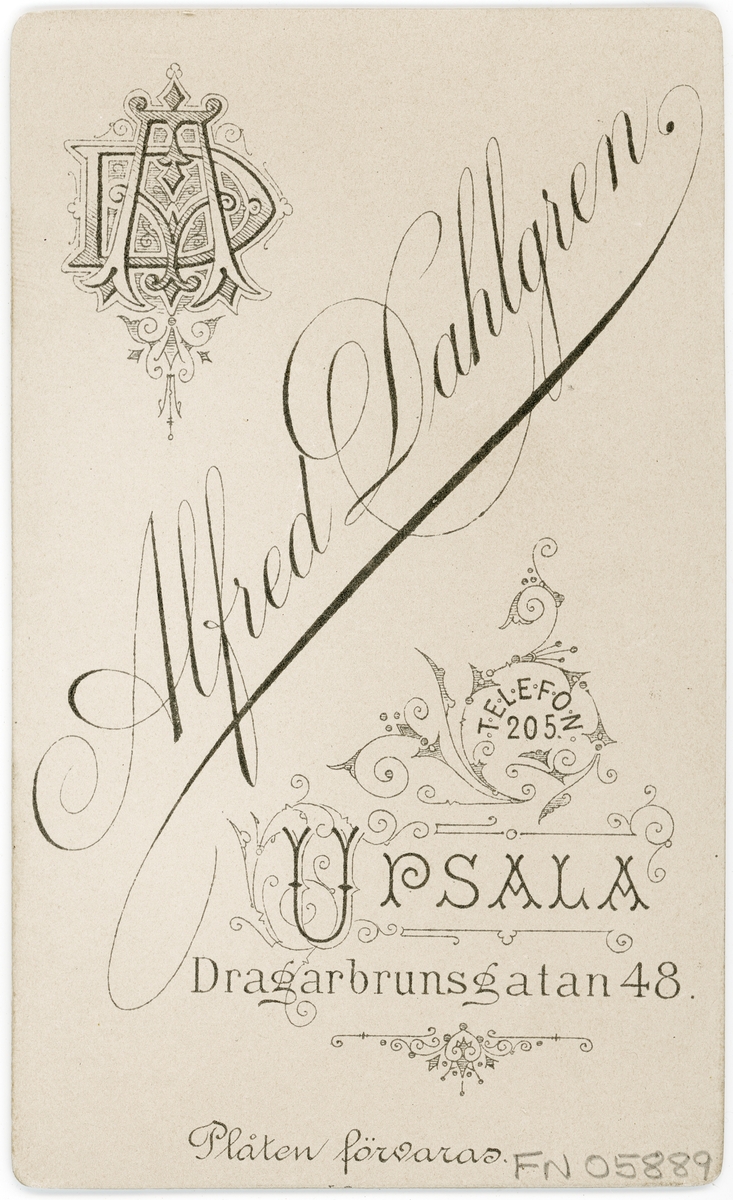 AD
Alfred Dahlgren.
TELEFON
205.
UPSALA
Dragarbrunsgatan 48.
Plåten förvaras.
FN 05889